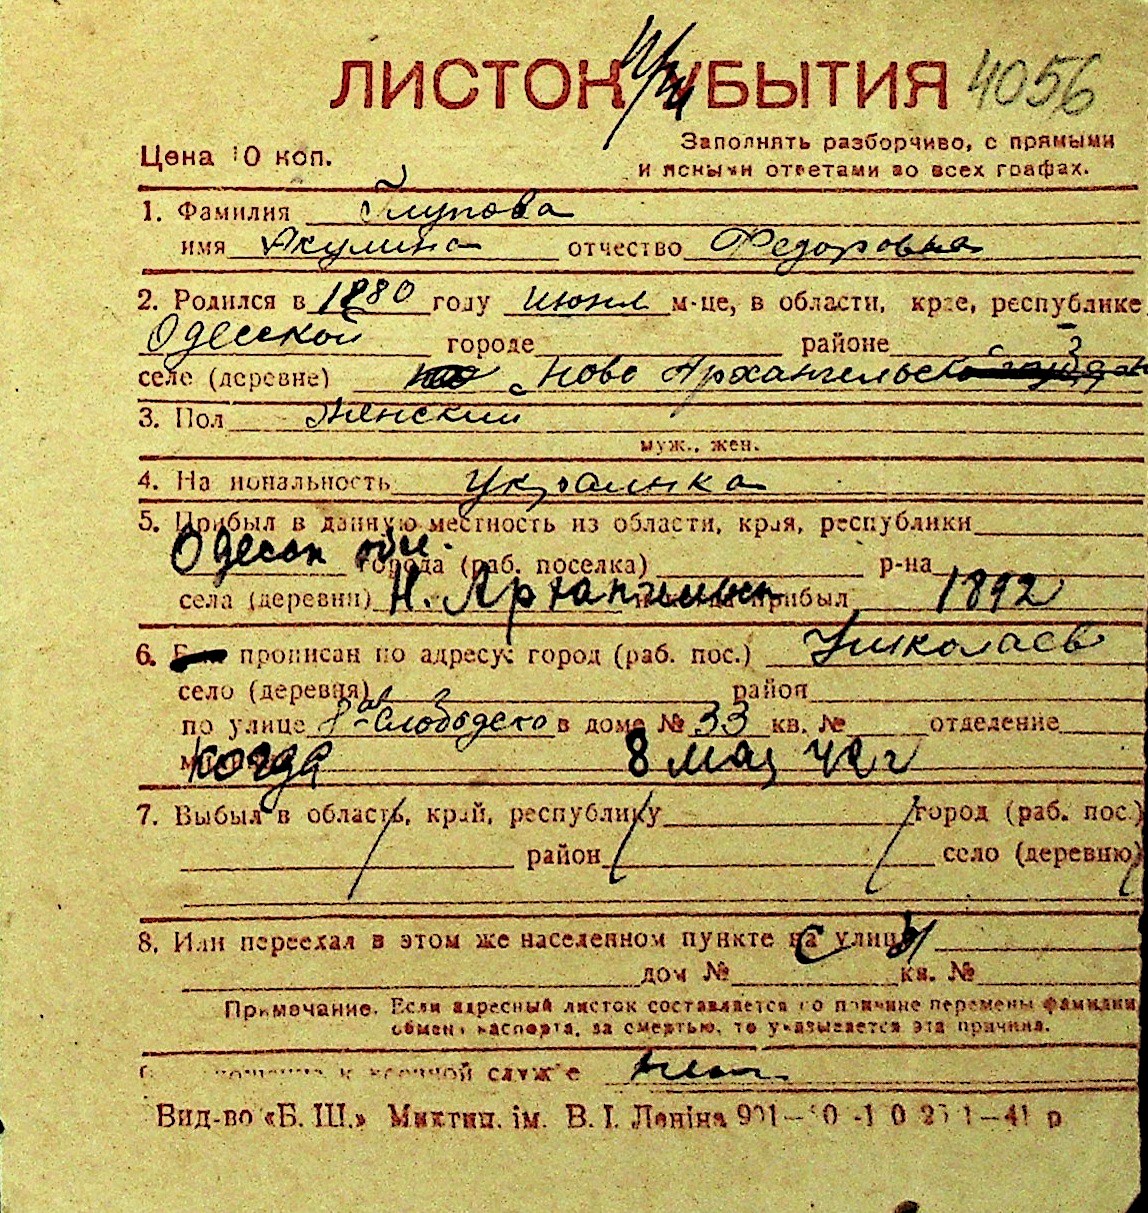 ЛИСТОК УБЫТИЯ 4056
Цена 10 коп.
Заполнять разборчиво, с прямыми
и ясными ответами во всех графах.
1. Фамилия Глупова
имя Акулина отчество Федоровна
2. Родился в 1880 году июня м-це, в области, крае, республике
Одесской городе районе
селе (деревне) с Ново Архангельск
3. Пол Женский
муж., жен.
4. Национальность украинка
5. Прибыл в данную местность из области, края, республики
Одесск обл. города (раб. поселка) р-на
села (деревни) Н. Архангельск прибыл 1892
6. прописан по адресу: город (раб. пос.) Николаев
село (деревня) район
по улице 8ая Слободско в доме № 33 кв. № отделение
когда 8 мая 42 г
7. Выбыл в область, край, республику город (раб. пос.)
район село (деревню)
8. Или переехал в этом же населенном пункте на улицу
дом № кв. №
Примечание. Если адресный листок составляется по причине перемены фамилии
обмена паспорта, за смертью, то указывается эта причина.
к военной службе нет
Вид-во «Б. Ш.» Миктип. ім. В. І. Леніна